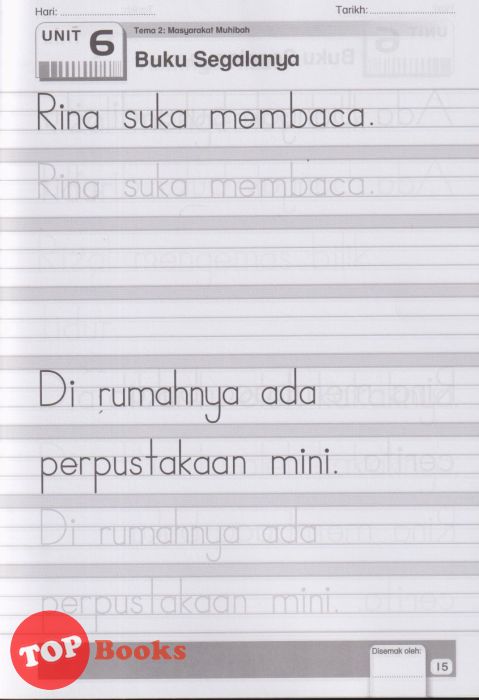 Hari: Tarikh:
UNIT 6
Tema 2: Masyarakat Muhibah
Buku Segalanya
Rina suka membaca.
Rina suka membaca.
Di rumahnya ada
perpustakaan mini.
Di rumahnya ada
perpustakaan mini.
TOP Books
Disemak oleh:
15